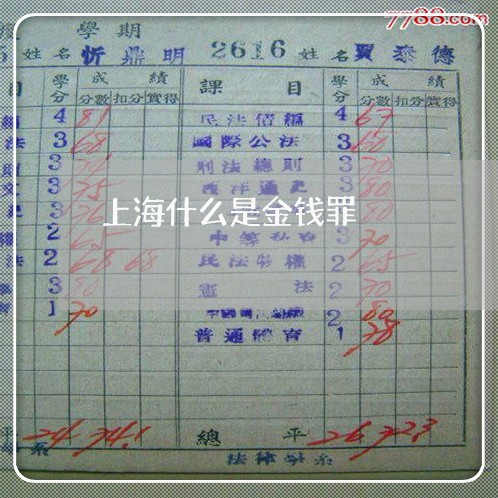 7788.com
學期
姓名 忻鼎明 2616 姓名 賈泰德
目 學分 成績 分數 扣分 實得 課目 學分 成績 分數 扣分 實得
4 81 民法債編 4 67
法 3 68 國際公法 3 60
3 刑法總則 3 70
3 75 西洋通史 3 80
3 80
上海什么是金钱罪
2 65 3 70
法 2 68 68 民法物權 2 65
3 80 憲法 2 70
1 70 2 80
普通體育 1 78
平 24 74.1 總平 26 72.3
系 法律學系